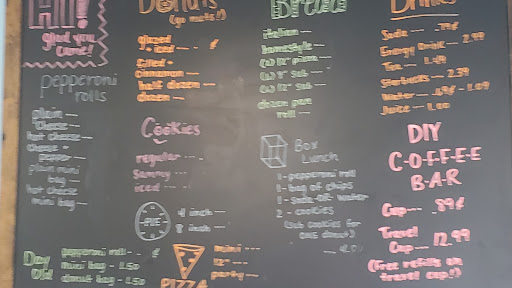 HI!
glad you
came!
pepperoni
rolls
plain ---
cheese ---
hot cheese ---
cheese +
pepper ---
plain mini
bag ---
hot cheese
mini bag ---
Day
Old
pepperoni roll -
mini bag - 1.50
donut bag - 1.50
Donuts
(go nuts!)
glazed
+ iced ---
filled +
cinnamon ---
half dozen ---
dozen ---
Cookies
regular ---
Sammy ---
iced ---
PIE
4 inch ---
8 inch ---
PIZZA
mini ---
12" ---
party ---
Bread
italian ---
homestyle ---
dozen pan
roll ---
Box
Lunch
1 - pepperoni roll
1 - bag of chips
1 - soda OR water
2 - cookies
(sub cookies for
one donut)
Drinks
Soda --- .79¢
Energy Drink --- 2.99
Tea --- 1.49
Starbucks --- 2.39
Water --- .49¢ - 1.09
Juice --- 1.00
DIY
C-O-F-F-E-E
B-A-R
Cup --- .89¢
Travel
Cup --- 12.99
(Free refills on
travel cup!)